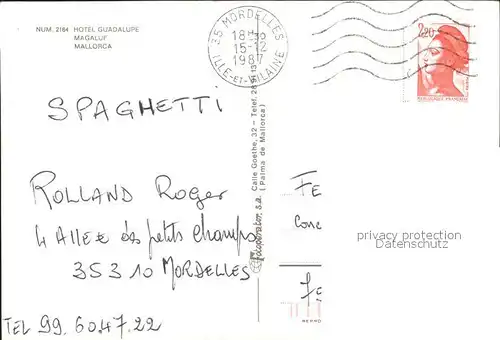 NUM. 2164 HOTEL GUADALUPE
MAGALUF
MALLORCA
35 MORDELLES
18H30
15-12
1987
ILLE-ET-VILAINE
2,20
REPUBLIQUE FRANÇAISE
SPAGHETTI
ROLLAND Roger
4 Allée des petits champs
35310 MORDELLES
TEL 99.60.47.22
Fotoperator, s.a. Calle Goethe, 32 - Telef.
(Palma de Mallorca)
FE
Conc
privacy protection
Datenschutz